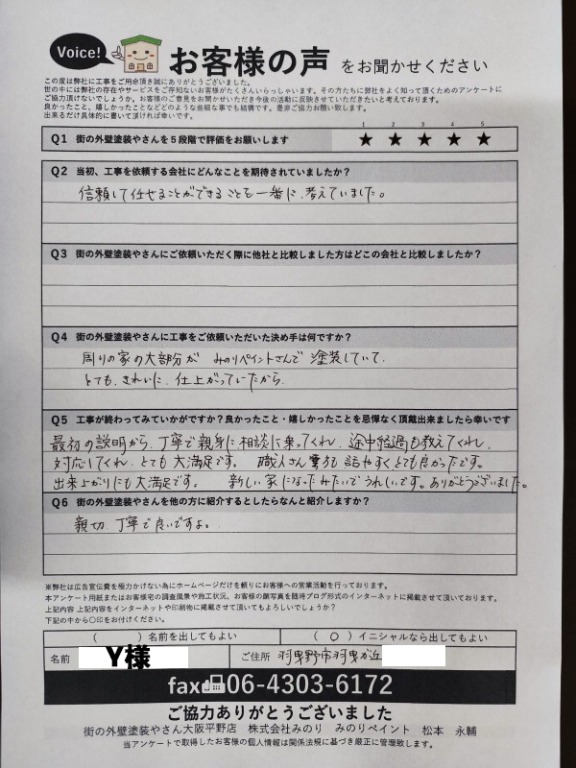 Voice!
お客様の声 をお聞かせください
この度は弊社に工事をご用命頂き誠にありがとうございました。
世の中には弊社の存在やサービスをご存知ないお客様がたくさんいらっしゃいます。その方たちに弊社をよく知って頂くためのアンケートに
ご協力頂けないでしょうか。お客様のご意見をお聞かせいただき今後の活動に反映させていただきたいと考えております。
良かったこと、嬉しかったことなどどのような些細な事でも結構です。是非ご協力お願い致します。
出来るだけ具体的に書いて頂ければ幸いです。
Q1 街の外壁塗装やさんを5段階で評価をお願いします
1 2 3 4 5
★ ★ ★ ★ ★
Q2 当初、工事を依頼する会社にどんなことを期待されていましたか?
信頼して任せることができることを一番に、考えていました。
Q3 街の外壁塗装やさんにご依頼いただく際に他社と比較しました方はどこの会社と比較しましたか?
Q4 街の外壁塗装やさんに工事をご依頼いただいた決め手は何ですか?
周りの家の大部分が みのりペイントさんで 塗装していて、
とても、きれいに、仕上がっていたから
Q5 工事が終わってみていかがですか?良かったこと・嬉しかったことを忌憚なく頂戴出来ましたら幸いです
最初の説明から、丁寧で親身に相談に乗ってくれ、途中経過も教えてくれ、
対応してくれ、とても大満足です。 職人さん 話やすくとても良かったです。
出来上がりにも大満足です。 新しい家になったみたいでうれしいです。ありがとうございました。
Q6 街の外壁塗装やさんを他の方に紹介するとしたらなんと紹介しますか?
親切、丁寧で良いですよ。
※弊社は広告宣伝費を極力かけない為にホームページだけを頼りにお客様への営業活動を行っております。
本アンケート用紙またはお客様宅の調査風景や施工状況、お客様の顔写真を随時ブログ形式のインターネットに掲載させて頂いております。
上記内容 上記内容をインターネットや印刷物に掲載させて頂いてもよろしいでしょうか?
下記の中から〇印をお付けください。
( )名前を出してもよい ( 〇 )イニシャルなら出してもよい
名前 Y様 ご住所 羽曳野市羽曳が丘
fax 06-4303-6172
ご協力ありがとうございました
街の外壁塗装やさん大阪平野店 株式会社みのり みのりペイント 松本 永輔
当アンケートで取得したお客様の個人情報は関係法規に基づき厳正に管理致します。